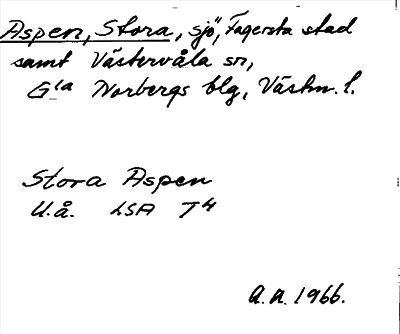 Aspen, Stora, sjö, Fagersta stad
samt Västervåla sn,
G:la Norbergs blg, Västm. l.
Stora Aspen
U.å. LSA T4
A.A. 1966.